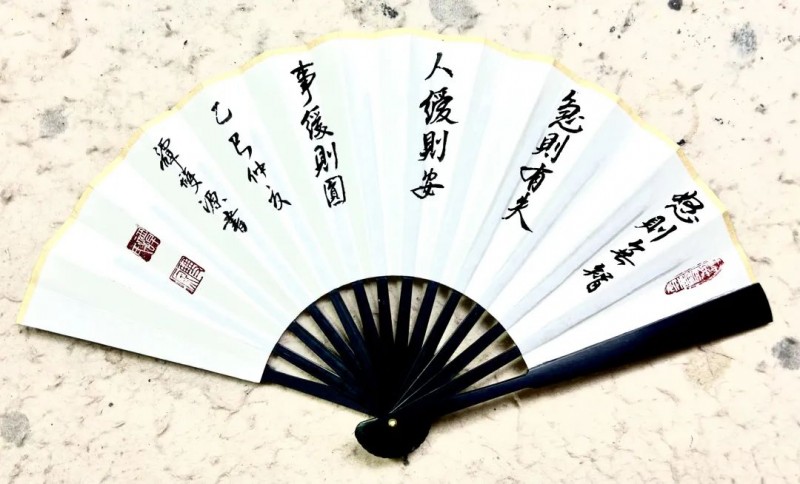 怒則無智
急則有失
人緩則安
事緩則圓
乙巳仲夏
源書